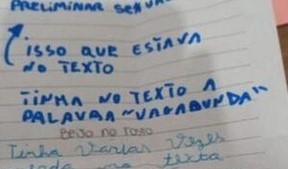 PRELIMINAR SEXUA
ISSO QUE ESTAVA
NO TEXTO
TINHA NO TEXTO A
PALAVRA "VAGABUNDA"
BEIJO NO ROSTO
Tinha Varias Vezes
no texto